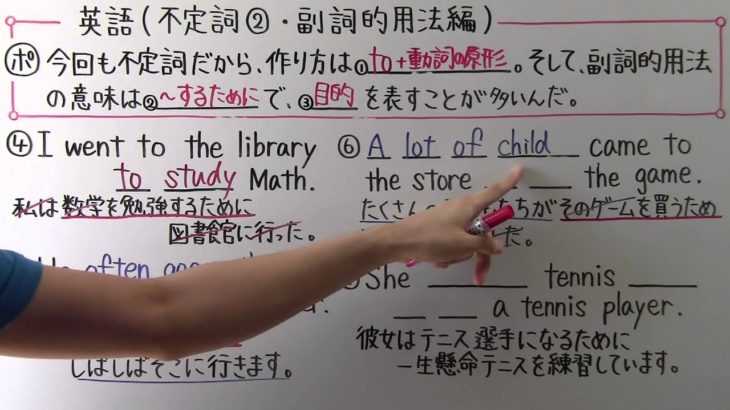 英語(不定詞②・副詞的用法編)
ポ 今回も不定詞だから、作り方は①to+動詞の原形。そして、副詞的用法
の意味は②~するためにで、③目的を表すことが多いんだ。
④ I went to the library
to study Math.
私は数学を勉強するために
図書館に行った。
often
しばしばそこに行きます。
⑥ A lot of child came to
the store the game.
たくさんの ちが そのゲームを買うため
だ。
She tennis
a tennis player.
彼女はテニス選手になるために
一生懸命テニスを練習しています。